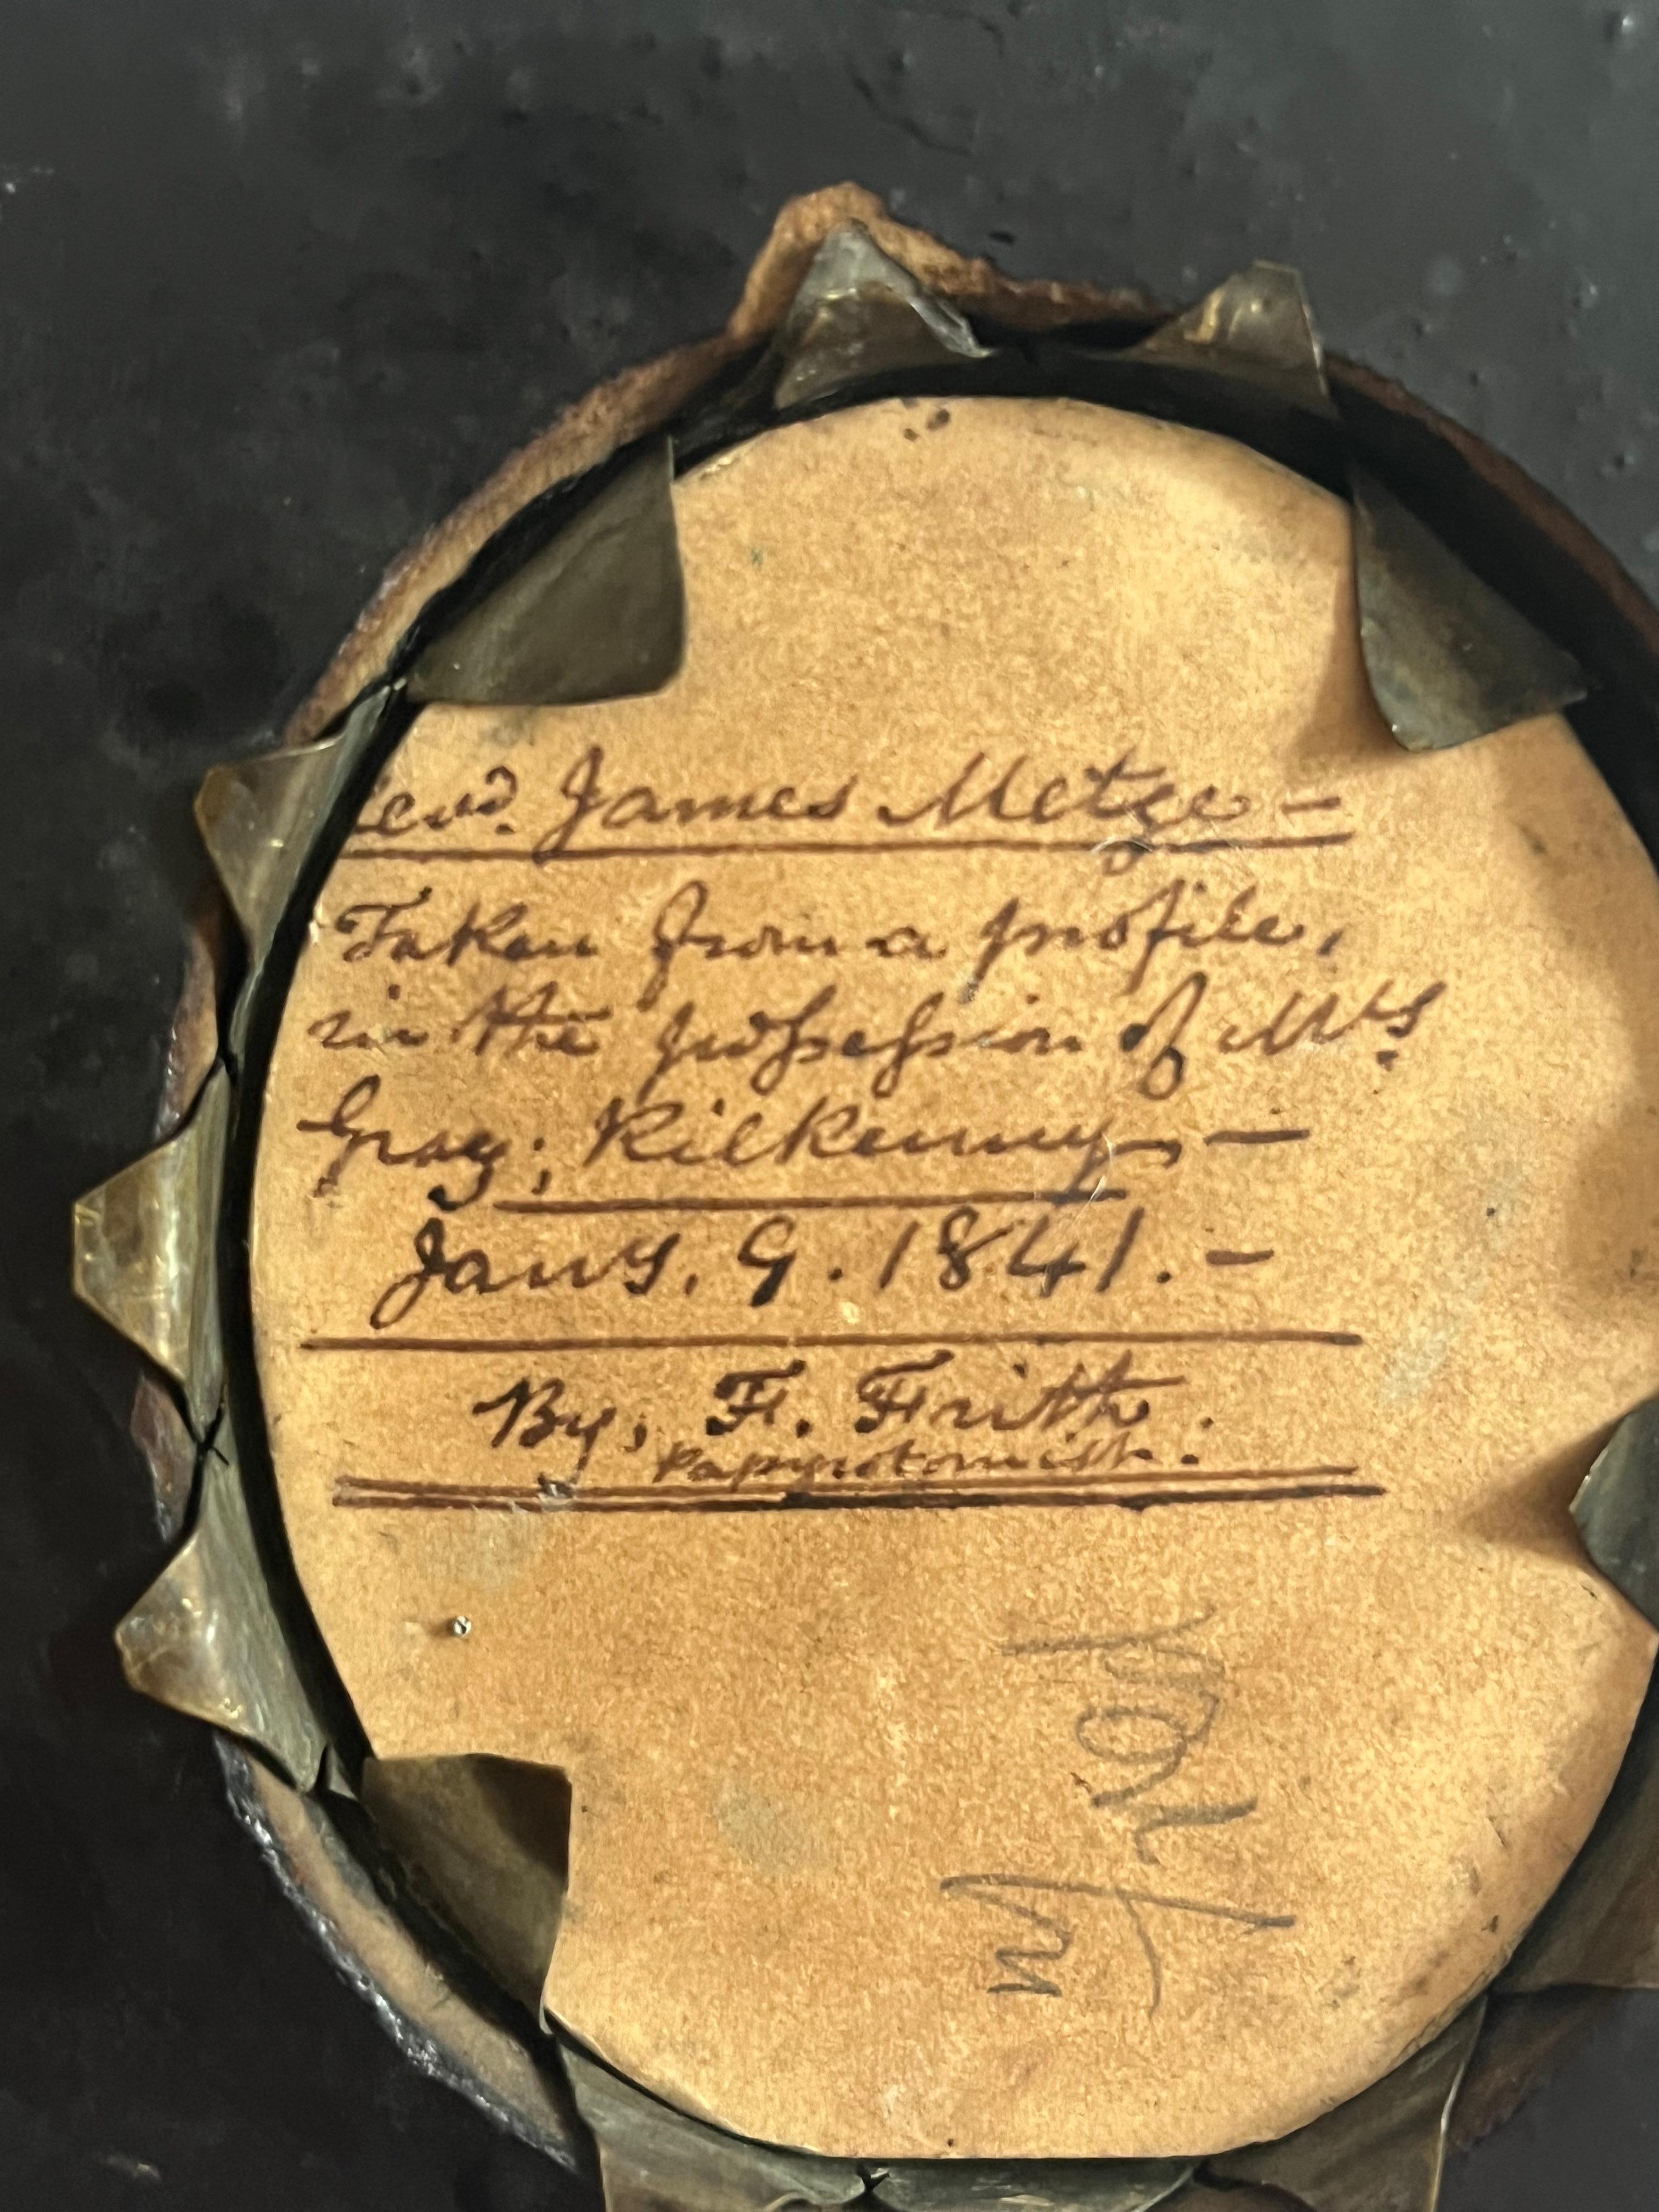 Revd. James Metge —
Taken from a profile,
in the possession of Mrs
Gray; Kilkenny, —
Jany. 9. 1841. —
By, F. Frith.
Papyrotomist.